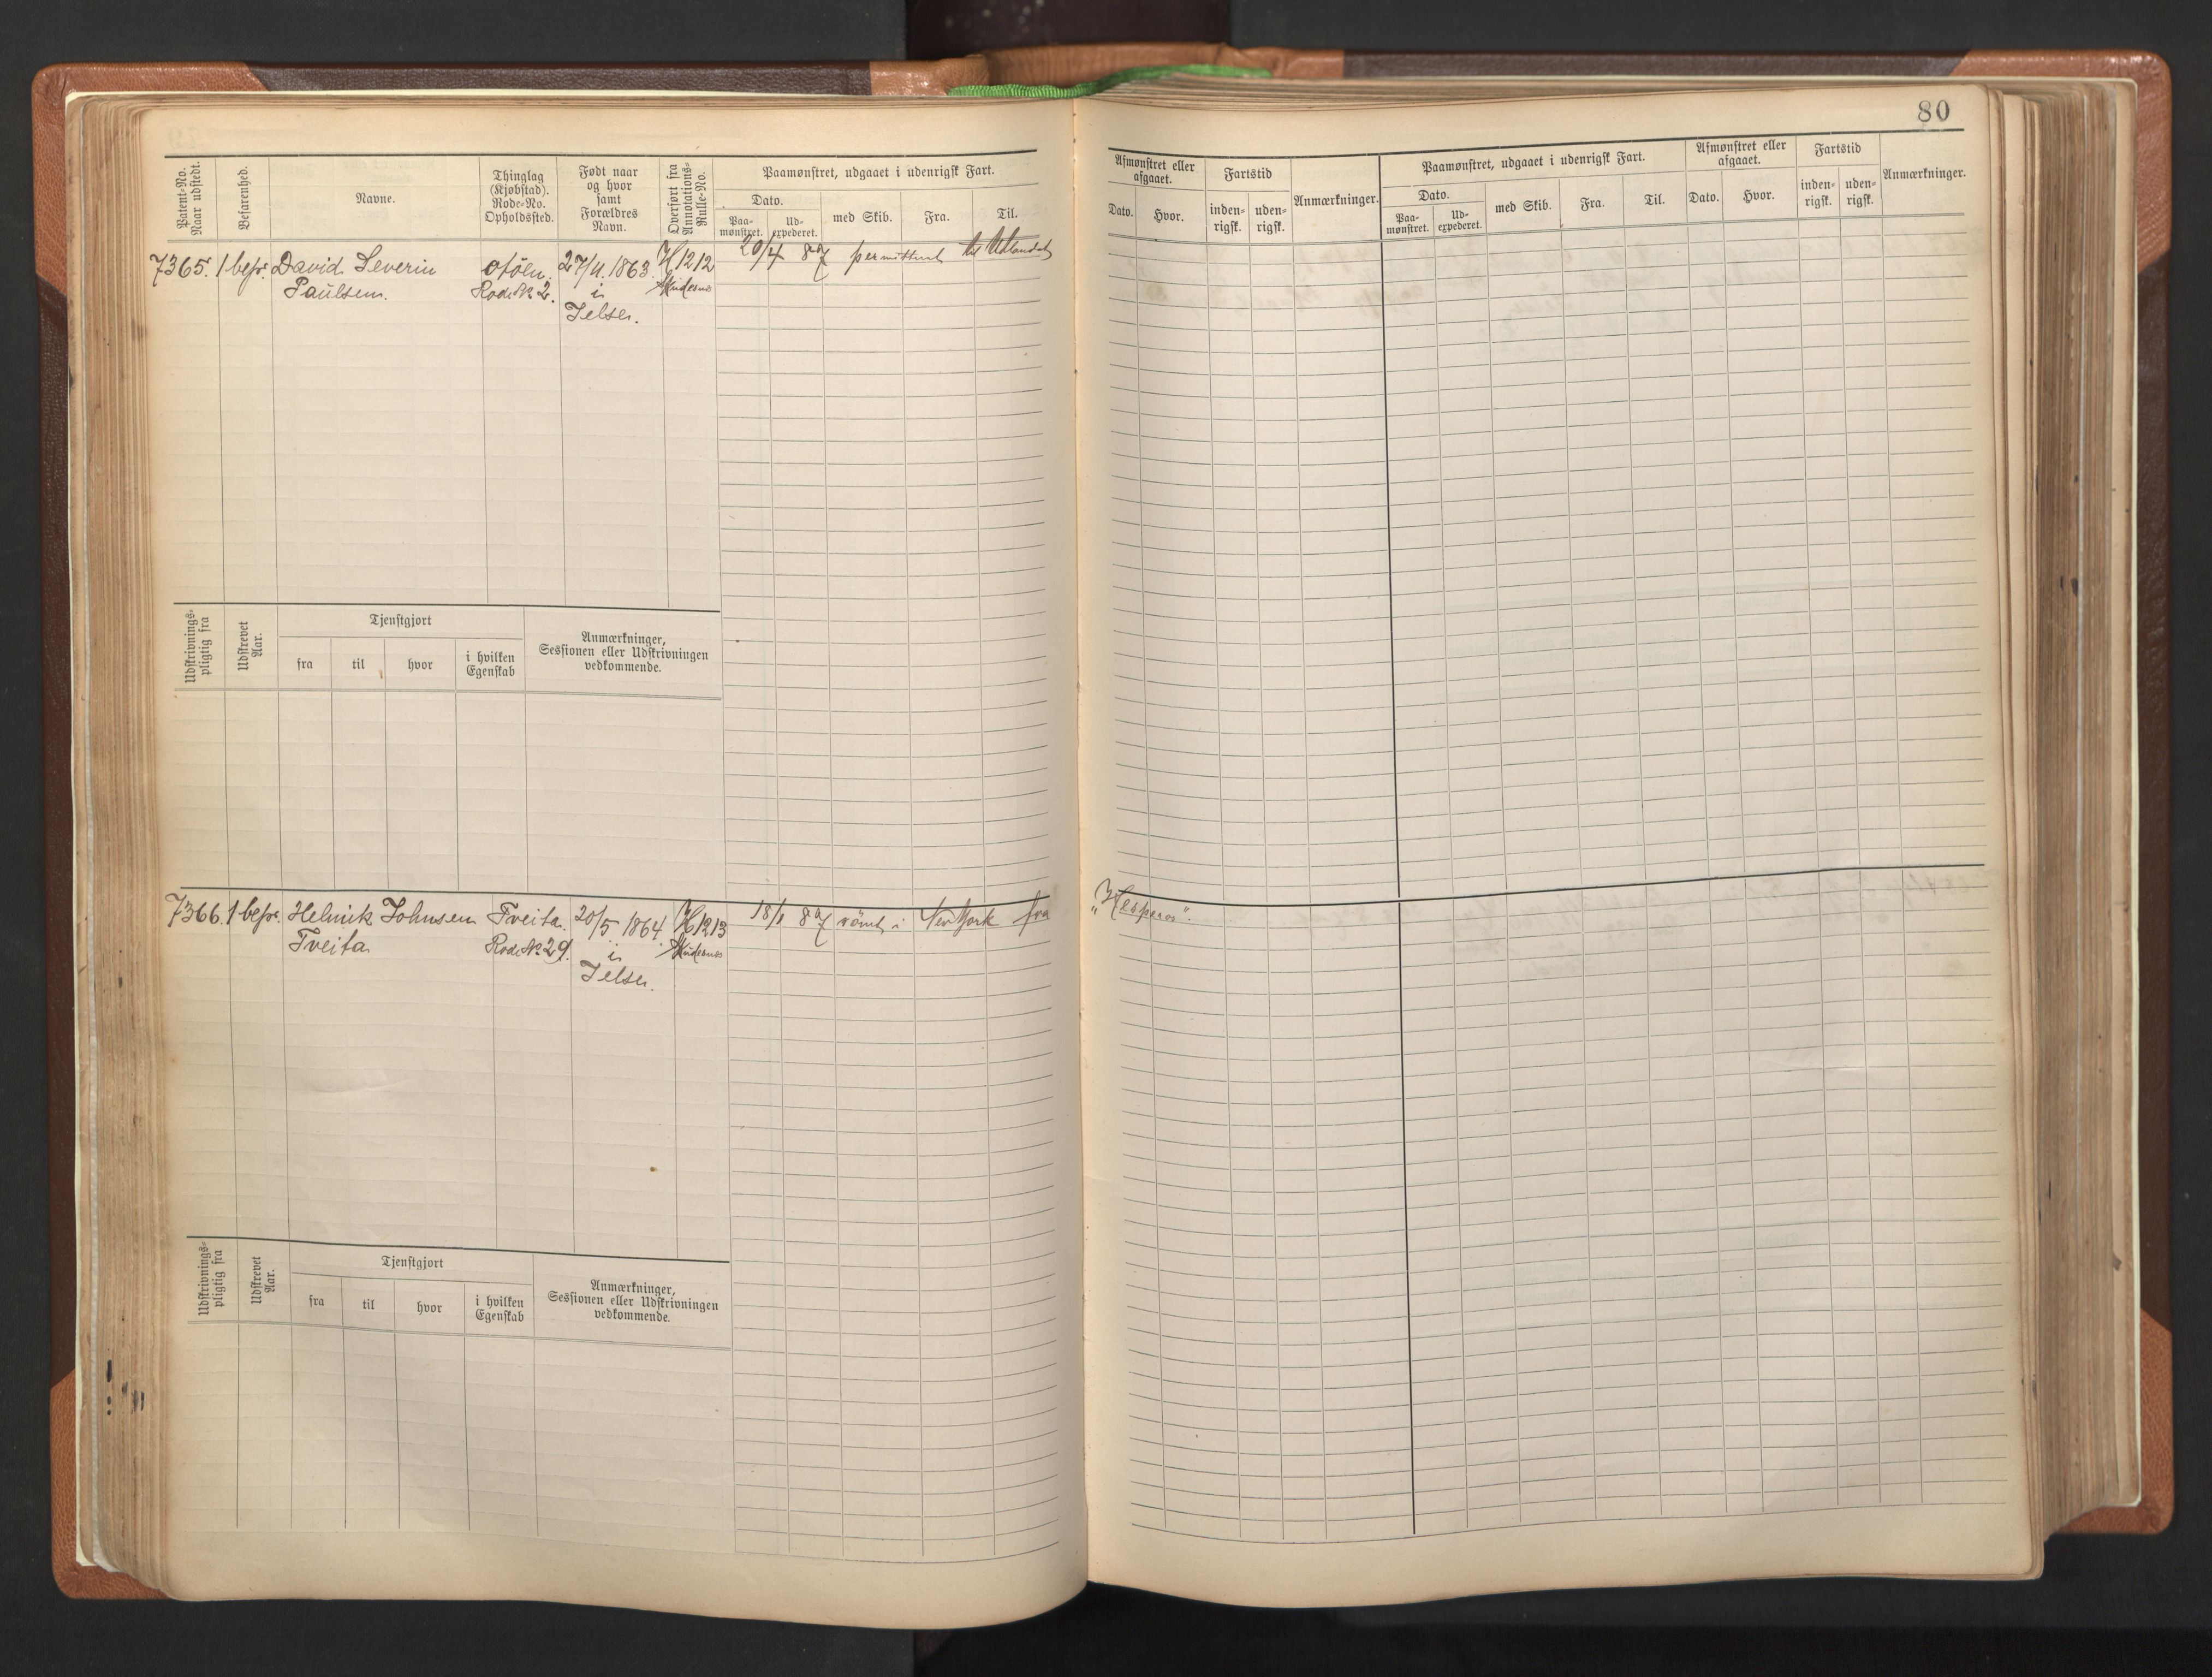 80
Patent-No.
Naar udstedt.
Befarenhed.
Navne.
Thinglag
(Kjøbstad).
Rode-No.
Opholdssted.
Født naar
og hvor
samt
Forældres
Navn.
Overført fra
Annotations-
Rulle-No.
Paamønstret, udgaaet i udenrigsk Fart.
Dato.
Paa-
mønstret.
Ud-
expederet.
med Skib.
Fra.
Til.
Afmønstret eller
afgaaet.
Dato.
Hvor.
Fartstid
inden-
rigsk.
uden-
rigsk.
Anmærkninger.
Paamønstret, udgaaet i udenrigsk Fart.
Dato.
Paa-
mønstret.
Ud-
expederet.
med Skib.
Fra.
Til.
Afmønstret eller
afgaaet.
Dato.
Hvor.
Fartstid
inden-
rigsk.
uden-
rigsk.
Anmærkninger.
7365. 1 befr. David Severin 27/11 1863 H1212 20/4 87 permitteret til Utlandet
Paulsen. Rode No 2. i Skudesnes
Jelse.
Udskrivnings-
pligtig fra
Udskrevet
Aar.
Tjenstgjort
fra
til
hvor
i hvilken
Egenskab
Anmærkninger,
Sessionen eller Udskrivningen
vedkommende.
7366. 1 befr. Helmik Johnsen Tveita. 20/5 1864 H1213 18/1 87 römt i New York fra "Hesperos".
Tveita Rode No 29. i Skudesnes
Jelse.
Udskrivnings-
pligtig fra
Udskrevet
Aar.
Tjenstgjort
fra
til
hvor
i hvilken
Egenskab
Anmærkninger,
Sessionen eller Udskrivningen
vedkommende.